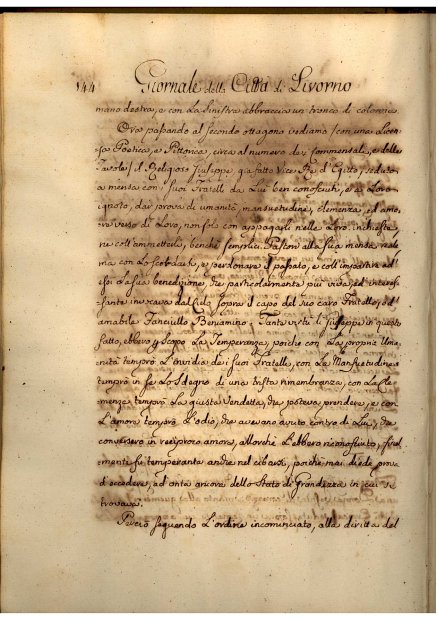 144 Giornale della Città di Livorno
mano destra, e con la sinistra abbraccia un tronco di colonna.
Ora passando al secondo ottagono vediamo (con una Licen-
sa Poetica, e Pittorica, circa al numero de i Commensali, e delle
Tavole) il Religioso Giuseppe, già fatto Vice Re d'Egitto, seduto
a mensa con i suoi Fratelli da Lui ben conosciuti, e a Loro
ignoto, dar prova di umanità, mansuetudine, clemenza, ed amo-
re verso di Loro, non solo con appagarli nelle Loro inchieste,
ma coll'ammetterli, benchè semplici Pastori alla sua mensa reale
ma con lo perdonare il passato, e coll'impartire ad
essi la sua benedizione, che particolarmente più viva, ed interes-
sante invocava dal Cielo sopra il capo del suo caro Fratello, ed
amabile Fanciullo Beniamino. Tante virtù di Giuseppe in questo
fatto, ebbero p. scopo La Temperanza, poichè con La propria Uma-
nità temprò L'invidia dei suoi Fratelli, con La Mansuetudine
temprò in se Lo Sdegno di una trista rimembranza, con La Cle-
menza temprò La giusta Vendetta, che poteva prendere, e con
L'amore temprò L'odio, che avevano avuto contro di Lui, che
conversero in reciproco amore, allorchè L'ebbero riconosciuto, final-
mente fu temperante anche nel cibarsi, poichè mai diede prova
d'eccedere, ad onta ancora dello Stato di grandezza in cui si
trovava.
Perciò seguendo L'ordine incominciato, alla diritta del